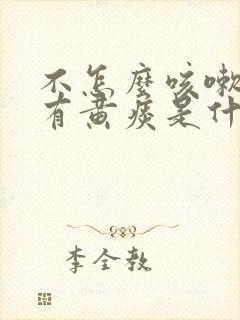 不怎麼咳嗽
有黄痰是什
李全教